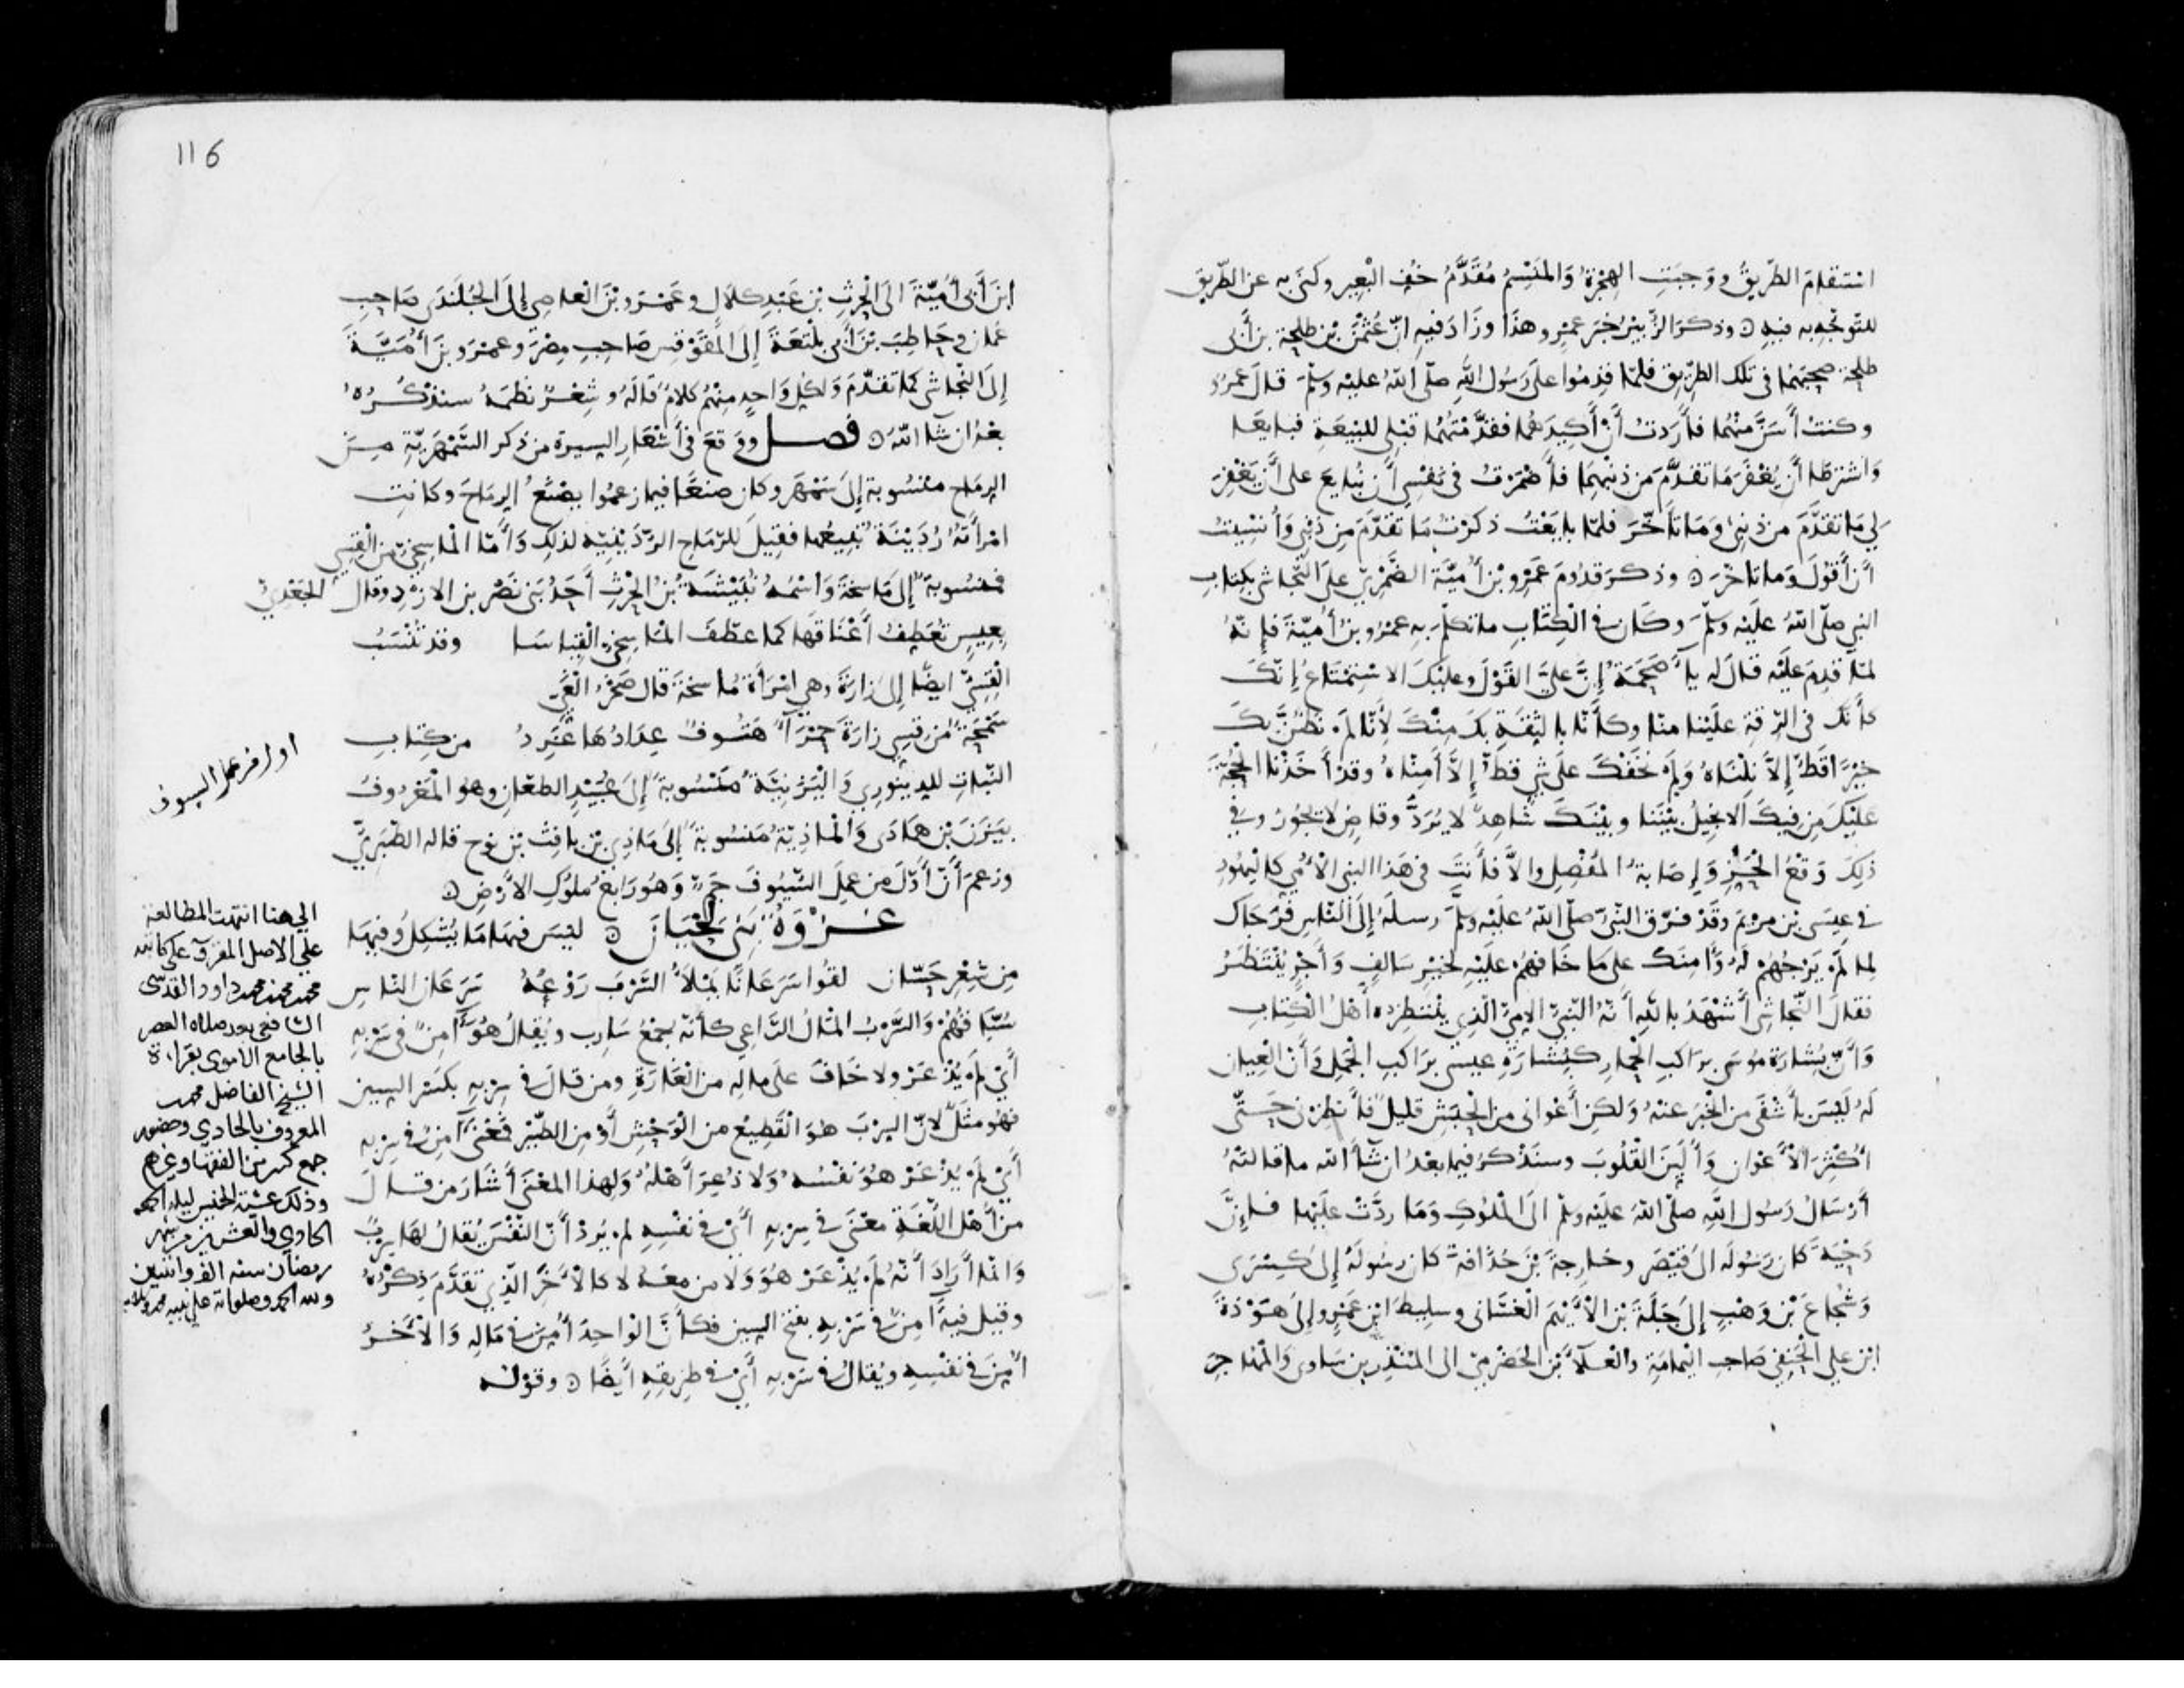 استقام الطريق ووجبت الهجرة والمنسم مقدم خف البعير وكنى به عن الطريق
للتوجه به فيه ۞ وذكر الزبير خبر عمرو هذا وزاد فيه ان عثمن بن طلحة بن أبي
طلحة صحبهما في تلك الطريق فلما قدموا على رسول الله صلى الله عليه وسلم قال عمرو
وكنت أسن منهما فأردت أن أكيدهما فقدمتهما قبلي للبيعة فبايعا
واشترطا أن يغفر ما تقدم من ذنبهما فأضمرت في نفسي أن نبايع على أن يغفر
لي ما تقدم من ذنبي وما تأخر فلما بايعت ذكرت ما تقدم من ذنبي وأنسيت
أن أقول وما تأخر ۞ وذكر قدوم عمرو بن أمية الضمري على النجاشي بكتاب
النبي صلى الله عليه وسلم وكان في الكتاب ما تكلم به عمرو بن أمية فإنه
لما قدم عليه قال له يا أصحمة إن علي القول وعليك الاستمتاع إنك
كأنك في الرقة علينا منا وكأنا بالثقة بك منك لأنا لم نظن بك
خيرا قط إلا نلناه ولم نخفك على شي قط إلا أمناه وقد أخذنا الحجة
عليك من فيك الانجيل بيننا وبينك شاهد لا يرد وقاض لا يجور وفي
ذلك وقع الحز وإصابة المفصل والا فأنت في هذا النبي الأمي كاليهود
في عيسى بن مريم وقد فرق النبي صلى الله عليه وسلم رسله إلى الناس فرجاك
لما لم يرجهم له وأمنك على ما خافهم عليه لخير سالف وأجر ينتظر
فقال النجاشي أشهد بالله أنه النبي الامي الذي ينتظره أهل الكتاب
وأن بشارة موسى براكب الحمار كبشارة عيسى براكب الجمل وأن العيان
له ليس بأشفى من الخبر عنه ولكن أعواني من الحبش قليل فأنظرني حتى
أكثر الأعوان وألين القلوب وسنذكر فيما بعد ان شآ الله ما قالته
أرسال رسول الله صلى الله عليه وسلم الى الملوك وما ردت عليها فإن
دحية كان رسوله الى قيصر وخارجة بن حذافة كان رسوله إلى كسرى
وشجاع بن وهب إلى جبلة بن الأيهم الغساني وسليط ابن عمرو إلى هوذة
ابن علي الحنفي صاحب اليمامة والعلآ بن الحضرمي الى المنذر بن ساوى والمهاجر
116
ابن أبي أمية الى الحرث بن عبد كلال وعمرو بن العاصي إلى الجلندى صاحب
عمان وحاطب بن أبي بلتعة إلى المقوقس صاحب مصر وعمرو بن أمية
إلى النجاشي كما تقدم ولكل واحد منهم كلام قاله وشعر نظمه سنذكره
بعد ان شآ الله ۞ فصل ووقع في أشعار السيرة من ذكر السمهرية من
الرماح منسوبة إلى سمهر وكان صنعا فيما زعموا يصنع الرماح وكانت
امرأته ردينة تبيعها فقيل للرماح الردينية لذلك وأما الماسخي من القسي
فمنسوبة إلى ماسخة واسمه نبيشة بن الحرث أحد بني نصر بن الازد وقال الجعدي
بعيس تعطف أعناقها كما عطف الماسخي القياسا وقد تنسب
القسي ايضا إلى زارة وهي امرأة ماسخة قال صخر الغي
سمحة من قسي زارة حمرآ هتوف عدادها غرد من كتاب
النبات للدينوري واليزنية منسوبة إلى عبيد الطعان وهو المعروف
بيزن بن هماذى والماذية منسوبة إلى ماذي بن يافث بن نوح قاله الطبري
وزعم أن أول من عمل السيوف جم وهو رابع ملوك الأرض ۞
غزوة بني لحيان ۞ ليس فيها ما يشكل وفيها
من شعر حسان لقوا سرعانا يملأ السرب روعه سرعان الناس
سباقهم والسرب المال الراعي كأنه جمع سارب ويقال هو آمن في سربه
أي لم يذعر ولا خاف على ماله من الغارة ومن قال في سربه بكسر السين
فهو مثل لان السرب هو القطيع من الوحش أو من الطير فمعنى آمن في سربه
أي لم يذعر هو نفسه ولا ذعر أهله ولهذا المعنى أشار من قال
من أهل اللغة معنى في سربه أي في نفسه لم يرد أن النفس يقال لها سرب
وانما أراد أنه لم يذعر هو ولا من معه لا كالأخر الذي تقدم ذكره
وقيل فيه آمن في سربه بفتح السين فكأن الواحد أمن في ماله والآخر
أمن في نفسه ويقال في سربه أي في طريقه أيضا ۞ وقوله
اول من عمل السيوف
الى هنا انتهت المطالعة
على الاصل المقروء على كاتبه
محمد بن محمد بن محمد داود القدسي
الشافعي بعد صلاة العصر
بالجامع الأموي بقراءة
الشيخ الفاضل محمد
المعروف بالحادي وحضور
جمع كثير من الفقها وغيرهم
وذلك عشية الخميس ليلة الجمعة
الحادي والعشرين من شهر
رمضان سنة الف واثنين
ولله الحمد وصلواته على نبيه محمد وسلامه